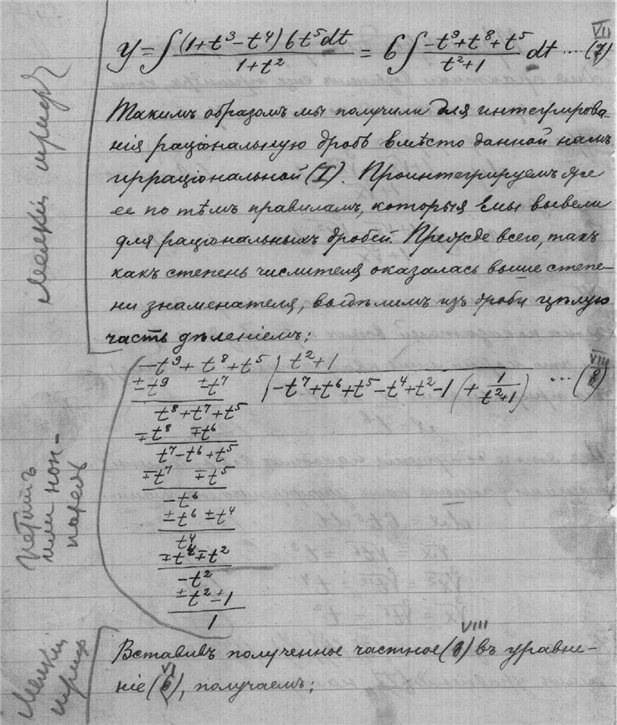 y = ∫ (1+t³−t⁴) 6t⁵dt / 1+t² = 6 ∫ −t⁹+t⁸+t⁵ / t²+1 dt ... (7) VII
Мелкій шрифтъ
Такимъ образомъ мы получили для интегрирова-
нія раціональную дробь вмѣсто данной намъ
ирраціональной (I). Проинтегрируемъ же
ее по тѣмъ правиламъ, которыя мы вывели
для раціональныхъ дробей. Прежде всего, такъ
какъ степень числителя оказалась выше степе-
ни знаменателя, выдѣлимъ изъ дроби цѣлую
часть дѣленіемъ;
−t⁹ + t⁸ + t⁵ | t²+1
±t⁹ ±t⁷ | −t⁷+t⁶+t⁵−t⁴+t²−1 (+ 1/t²+1) ... (8) VIII
t⁸+t⁷+t⁵
∓t⁸ ∓t⁶
t⁷−t⁶+t⁵
∓t⁷ ∓t⁵
−t⁶
±t⁶ ±t⁴
t⁴
∓t⁴∓t²
−t²
±t²±1
1
Петитъ
или нон-
парель
Мелкій
шрифтъ
Вставивъ полученное частное (8) VIII въ уравне-
ніе (6) VI, получаемъ;